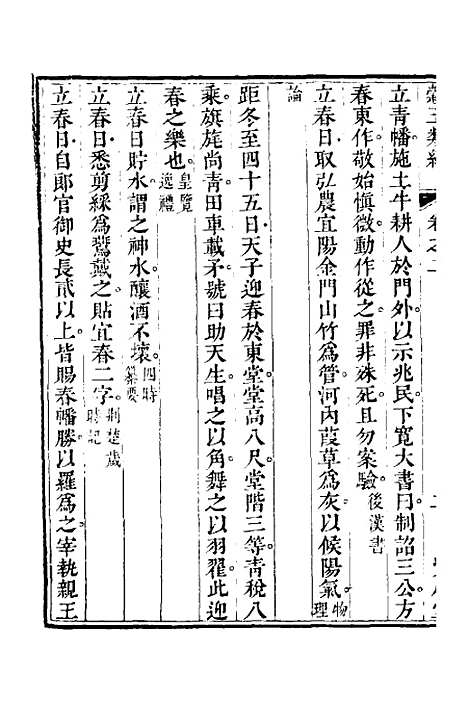 立青幡施土牛耕人於門外以示兆民下寬大書曰制詔三公方
春東作敬始慎微動作從之罪非殊死且勿案驗後漢書
立春日取弘農宜陽金門山竹為管河內葭草為灰以候陽氣物理
論
距冬至四十五日天子迎春於東堂堂高八尺堂階三等青稅八
乘旗旄尚青田車載矛號曰助天生唱之以角舞之以羽翟此迎
春之樂也皇覽逸禮
立春日貯水謂之神水釀酒不壞四時纂要
立春日悉剪綵為鷰戴之貼宜春二字荆楚歲時記
立春日自郎官御史長貳以上皆賜春幡勝以羅為之宰執親王